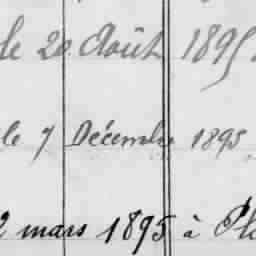 le 20 Août 1895
le 7 Décembre 1895
2 mars 1895 à